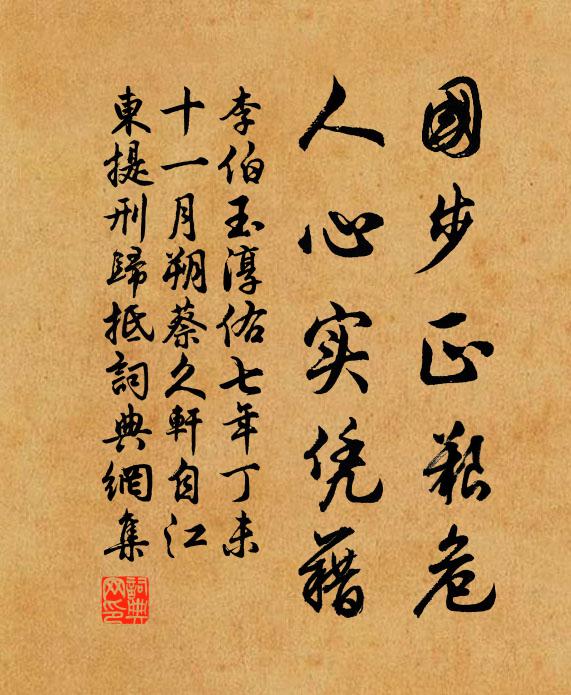 國步正艱危
人心实凭藉
李伯玉淳佑七年丁未
十一月朔蔡久軒自江
東提刑歸抵詞典網集
詞典網印